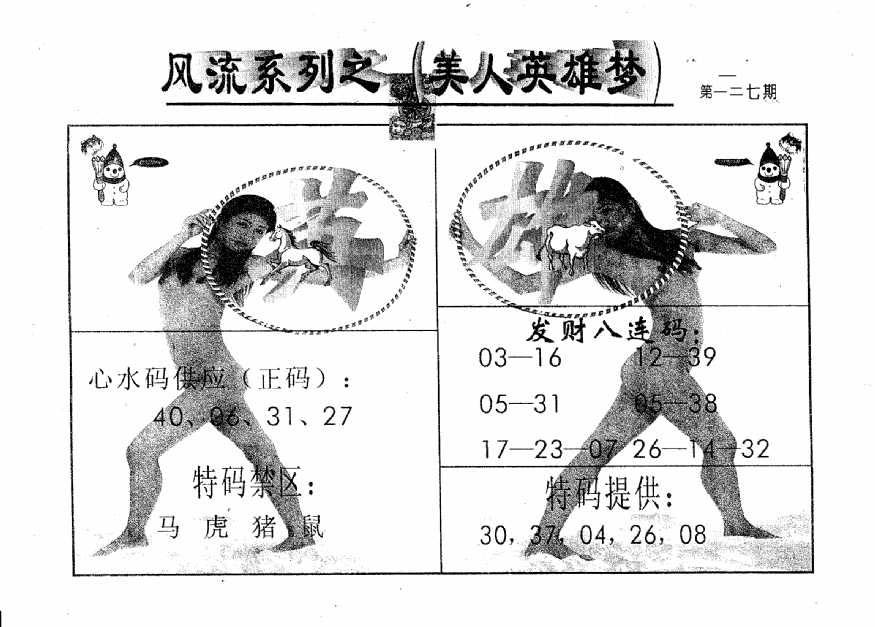 风流系列之 美人英雄梦
第一二七期
心水码供应（正码）：
40、06、31、27
特码禁区：
马 虎 猪 鼠
发财八连码：
03—16 12—39
05—31 05—38
17—23—07 26—14—32
特码提供：
30，37，04，26，08